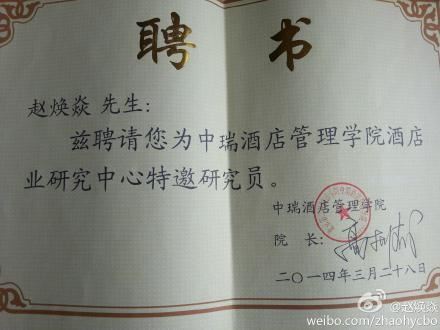 聘 书
赵焕焱 先生：
兹聘请您为中瑞酒店管理学院酒店
业研究中心特邀研究员。
中瑞酒店管理学院
院 长：
二〇一四年三月二十八日
@赵焕焱
weibo.com/zhaohycbo